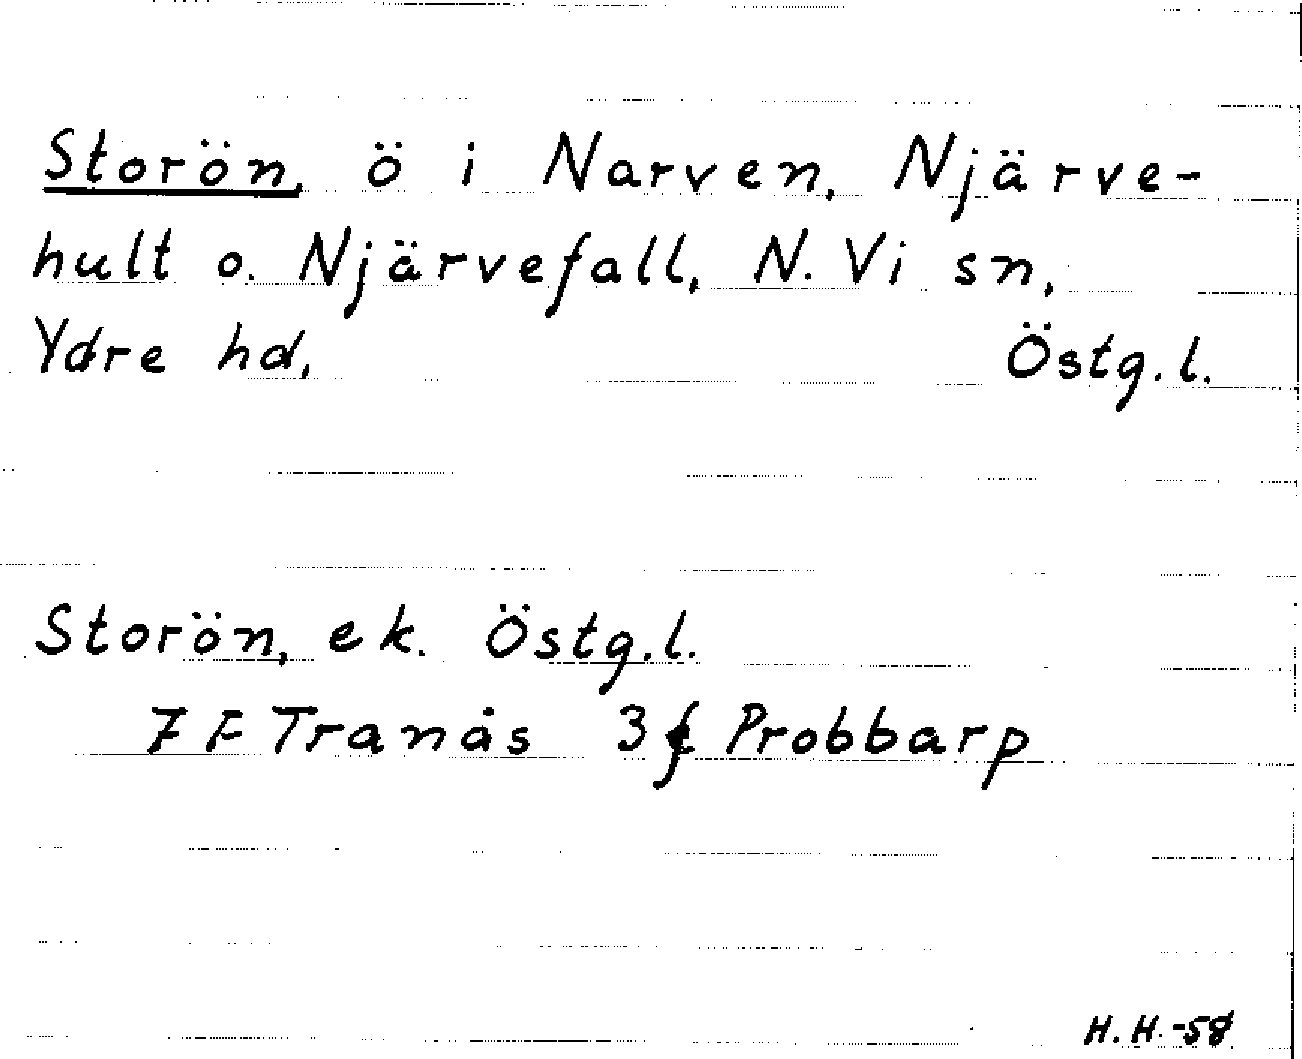 Storön, ö i Narven, Njärve-
hult o. Njärvefall, N. Vi sn,
Ydre hd, Östg.l.
Storön, ek. Östg.l.
7 F Tranås 3f Probbarp
H.H.-58